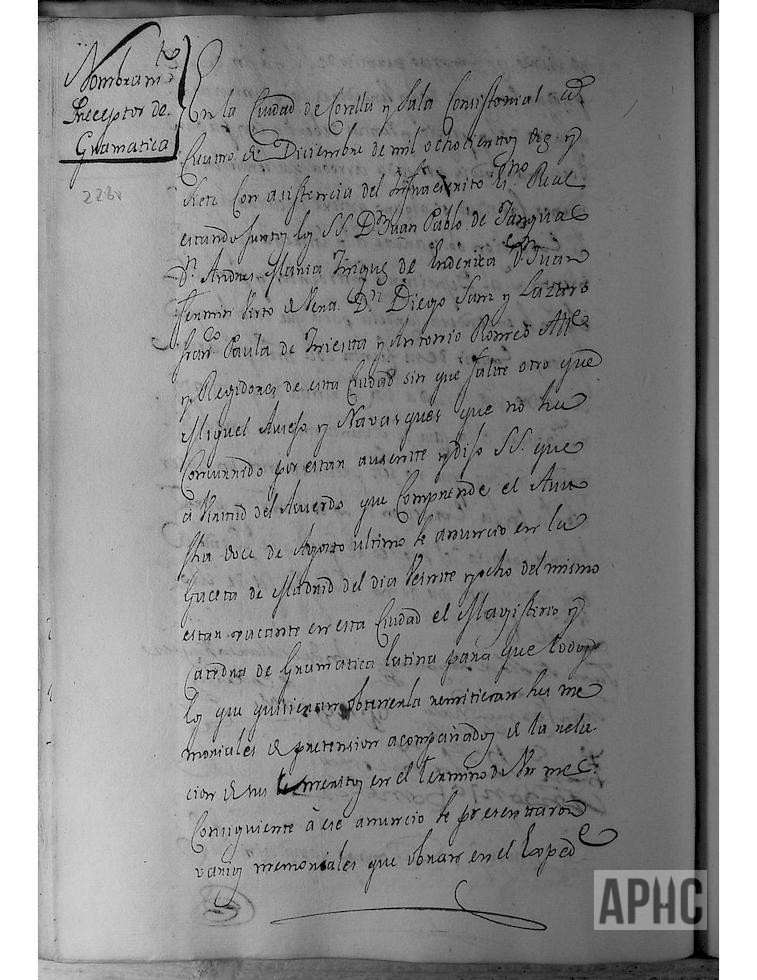 Nombram.to
Preceptor de
Gramatica
228v
En la Ciudad de Corella y Sala Consistorial a
Cuatro de Diciembre de mil ochocientos diez y
siete con asistencia del Infraescrito Es.no Real
estando juntos los SS. D.n Juan Pablo de
D.n Andres Maria de D.n Juan
Fermin Virto de Vera D.n Diego Sanz y Lazaro
Fran.co Paula de y Antonio Romeo Alc.
y Regidores de esta Ciudad sin que falte otro que
Miguel y Navasques que no ha
Concurrido por estar ausente y dijo SS. que
a Virtud del Acuerdo que Comprende el Auto
fha doce de Agosto ultimo se anuncio en la
Gaceta de Madrid del dia Veinte y ocho del mismo
estar vacante en esta Ciudad el Magisterio y
Catedra de Gramatica latina para que todos
los que quisieran obtenerla remitieran sus me
moriales de pretension acompañados de la rela
cion de sus meritos en el termino de Un mes:
Consiguiente à ese anuncio se presentaron
varios memoriales que obran en el Exped.e
APHC